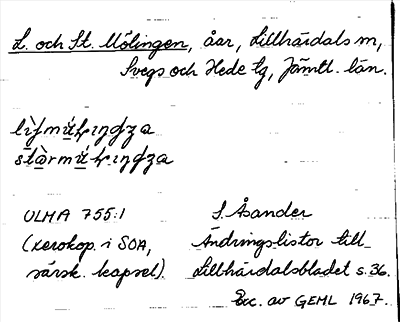 L. och St. Mölingen, åar, Lillhärdals sn,
Svegs och Hede tg, Jämtl. län.
ULMA 755:1
(xerokop. i SOA,
särsk. kapsel).
S. Åsander
Ändringslistor till
Lillhärdalsbladet s. 36.
Exc. av GEML 1967.